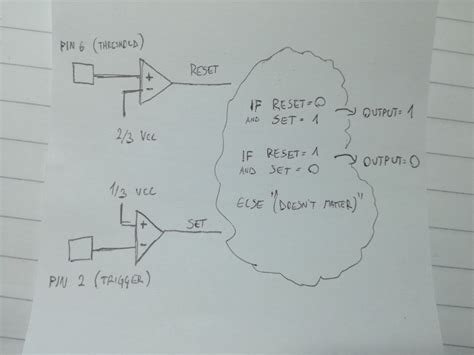 PIN 6 (THRESHOLD)
+
-
RESET
2/3 VCC
1/3 VCC
+
-
SET
PIN 2 (TRIGGER)
IF RESET=0
AND SET = 1
OUTPUT=1
IF RESET=1
AND SET = 0
OUTPUT=0
ELSE "(DOESN'T MATTER)"